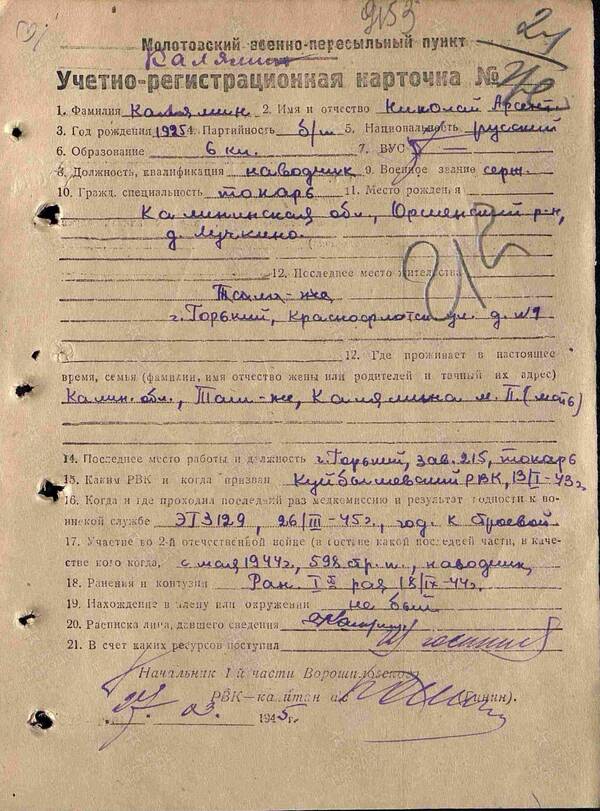 9153
24
Молотовский военно-пересыльный пункт
Калямин
Учетно-регистрационная карточка №
1. Фамилия Калямин 2. Имя и отчество Николай Арсент
3. Год рождения 1925 4. Партийность б/п 5. Национальность русский
6. Образование 6 кл. 7. ВУС —
8. Должность, квалификация наводчик 9. Военное звание серж.
10. Гражд. специальность токарь 11. Место рождения
Калининская обл.,
д. Лучкино.
12. Последнее место жительства
г. Горький, Краснофлотск. ул. д. №1
12. Где проживает в настоящее
время, семья (фамилии, имя отчество жены или родителей и точный их адрес)
Калин. обл., Там-же, Калямина М. П. (мать)
14. Последнее место работы и должность г. Горький, зав. 215, токарь
15. Каким РВК и когда призван Куйбышевский РВК, 13/I-43г.
16. Когда и где проходил последний раз медкомиссию и результат годности к во-
инской службе ЭГ3129, 26/III-45г., год. к строевой
17. Участие во 2-й отечественной войне (в составе какой последней части, в каче-
стве кого когда, с мая 1944г., 598 стр. п., наводчик,
18. Ранения и контузии Ран. I раз 18/IX-44г.
19. Нахождение в плену или окружении не был
20. Расписка лица, давшего сведения
21. В счет каких ресурсов поступил госпиталь
Начальник 1-й части Ворошиловского
РВК—капитан а/с
27. 03. 1945г.